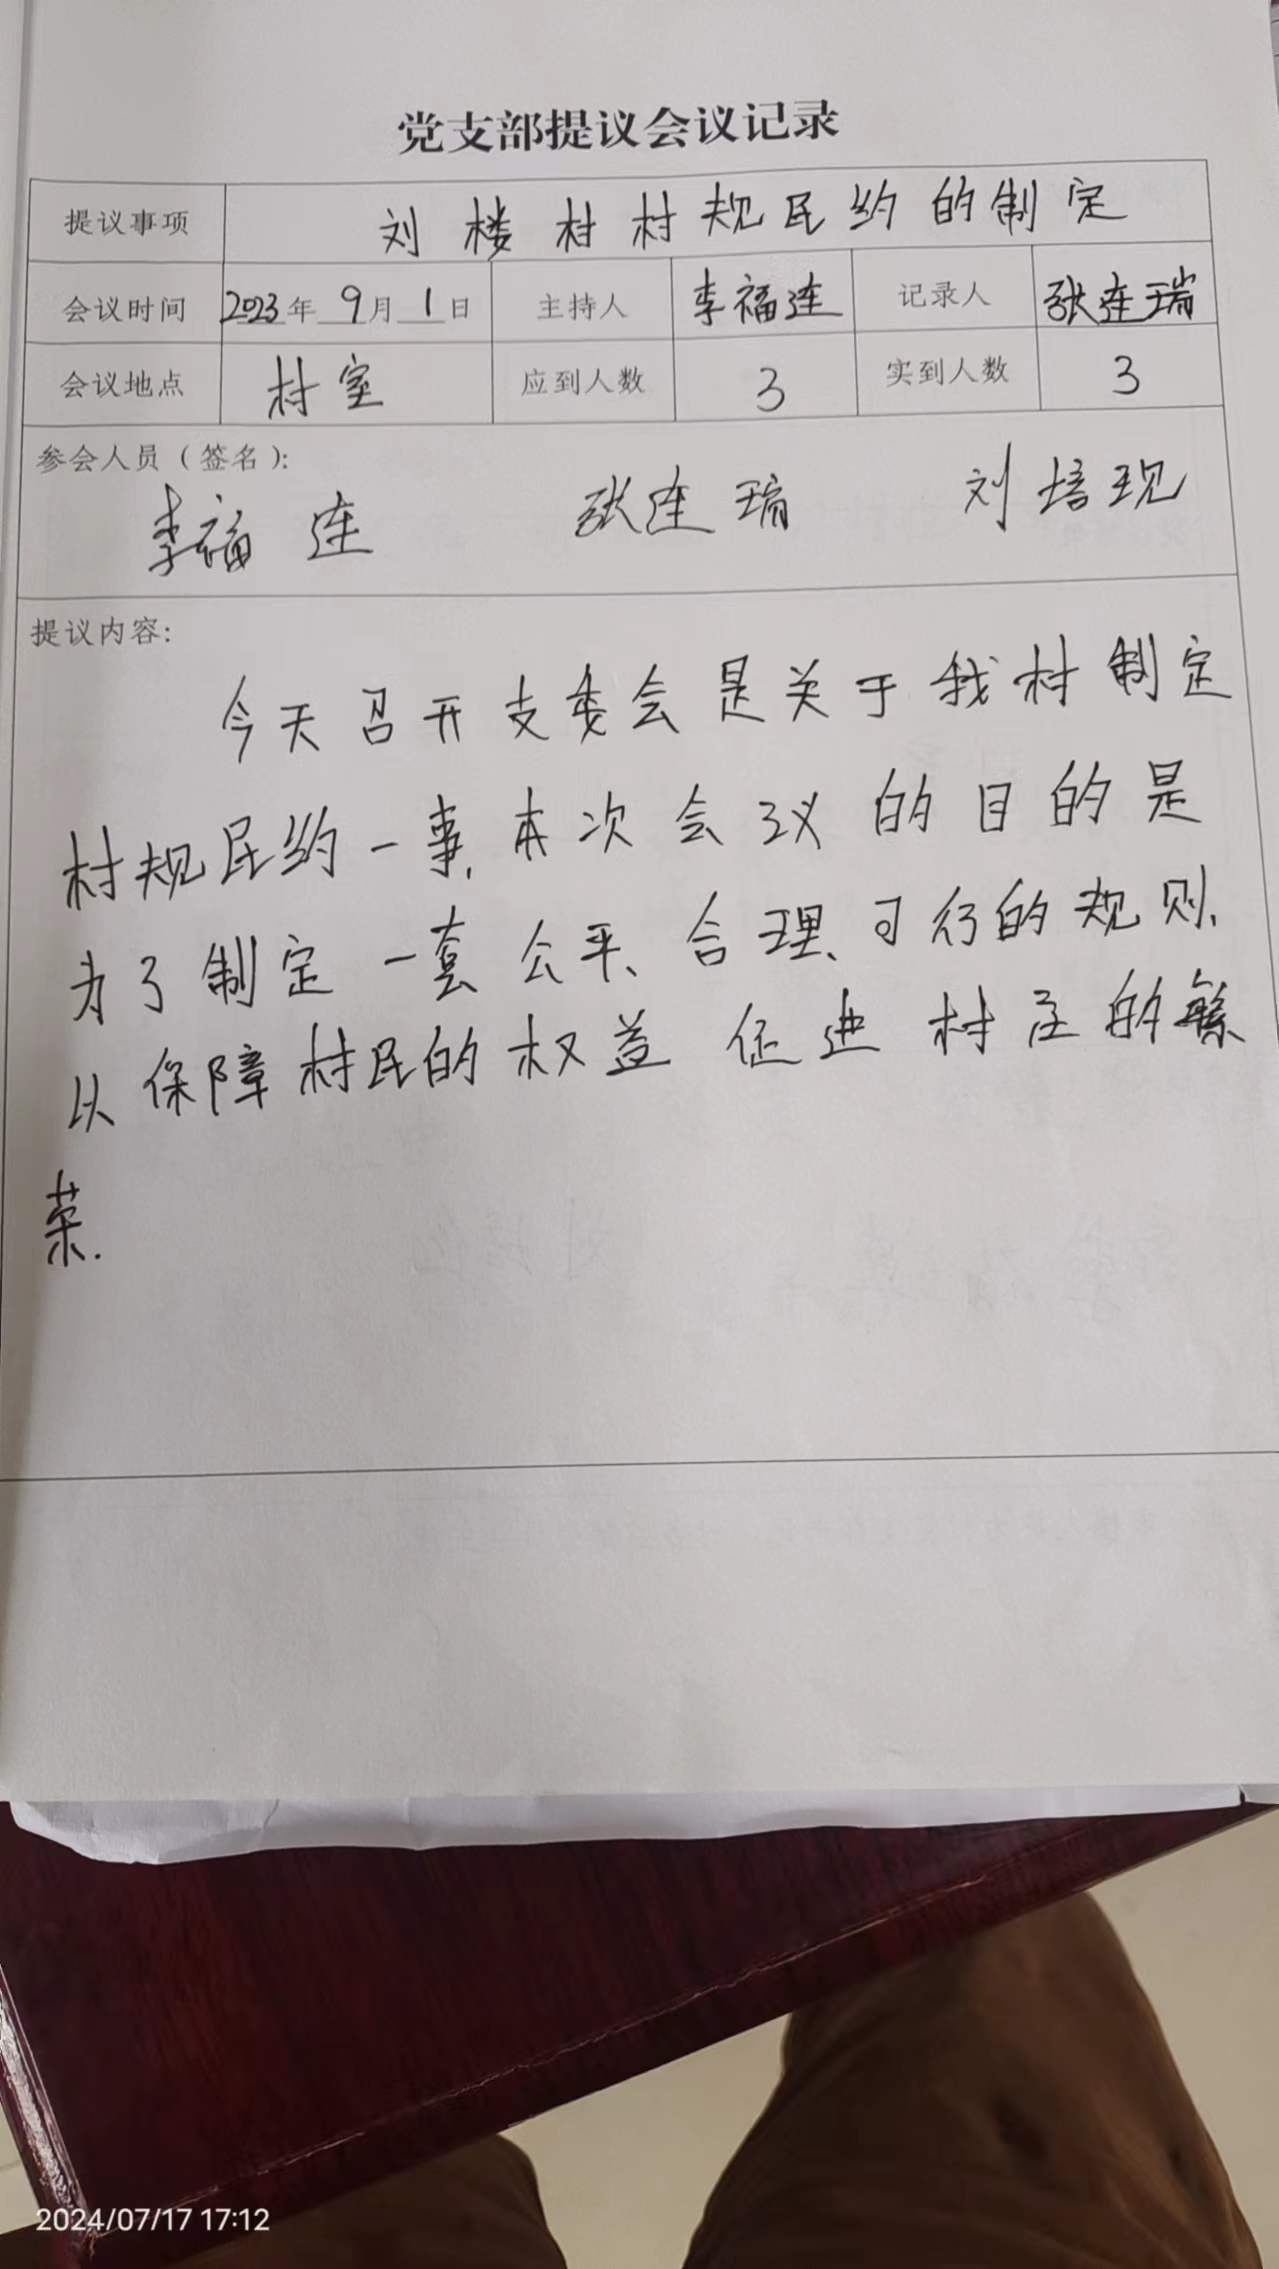 党支部提议会议记录
提议事项 刘楼村村规民约的制定
会议时间 2023年9月1日 主持人 李福连 记录人 张连瑞
会议地点 村室 应到人数 3 实到人数 3
参会人员（签名）：
李福连 张连瑞 刘培现
提议内容：
今天召开支委会是关于我村制定
村规民约一事,本次会议的目的是
为了制定一套公平、合理、可行的规则、
以保障村民的权益 促进村庄的繁
荣.
2024/07/17 17:12